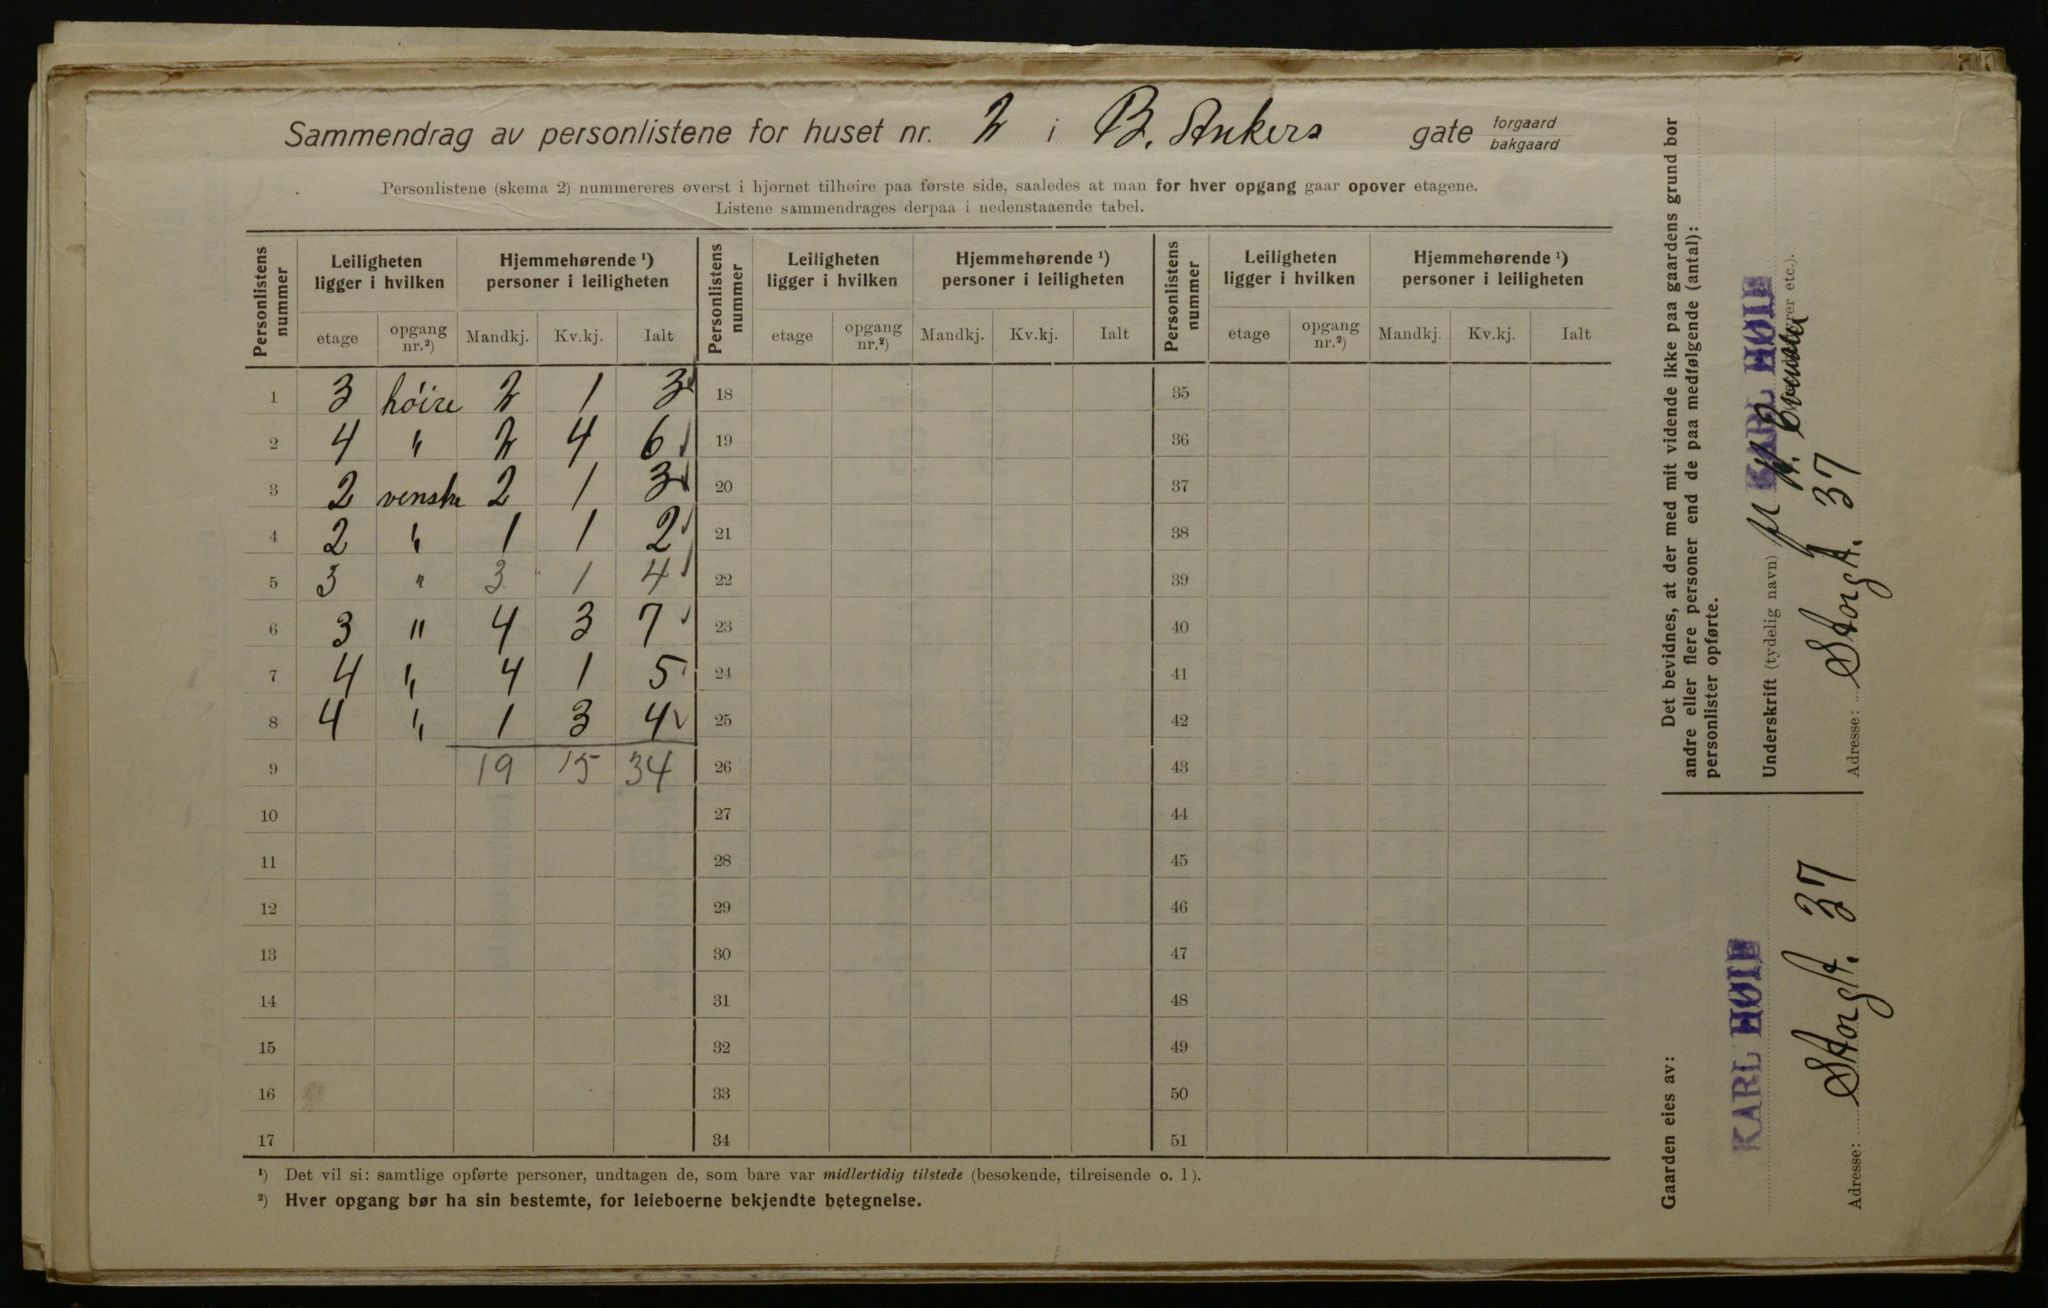 Sammendrag av personlistene for huset nr. 2 i B. Ankers gate forgaard bakgaard
Personlistene (skema 2) nummereres øverst i hjørnet tilhøire paa første side, saaledes at man for hver opgang gaar opover etagene.
Listene sammendrages derpaa i nedenstaaende tabel.
Personlistens nummer Leiligheten ligger i hvilken Hjemmehørende ¹) personer i leiligheten Personlistens nummer Leiligheten ligger i hvilken Hjemmehørende ¹) personer i leiligheten Personlistens nummer Leiligheten ligger i hvilken Hjemmehørende ¹) personer i leiligheten
etage opgang nr.²) Mandkj. Kv.kj. Ialt etage opgang nr.²) Mandkj. Kv.kj. Ialt etage opgang nr.²) Mandkj. Kv.kj. Ialt
1 3 høire 2 1 3 18 35
2 4 " 2 4 6 19 36
3 2 venstre 2 1 3 20 37
4 2 " 1 1 2 21 38
5 3 " 3 1 4 22 39
6 3 " 4 3 7 23 40
7 4 " 4 1 5 24 41
8 4 " 1 3 4 25 42
9 19 15 34 26 43
10 27 44
11 28 45
12 29 46
13 30 47
14 31 48
15 32 49
16 33 50
17 34 51
¹) Det vil si: samtlige opførte personer, undtagen de, som bare var midlertidig tilstede (besøkende, tilreisende o. l).
²) Hver opgang bør ha sin bestemte, for leieboerne bekjendte betegnelse.
Det bevidnes, at der med mit vidende ikke paa gaardens grund bor
andre eller flere personer end de paa medfølgende (antal):
personlister opførte.
Underskrift (tydelig navn) KARL HØIE
etc.).
Adresse: Storgt. 37
Gaarden eies av:
KARL HØIE
Adresse: Storgt. 37